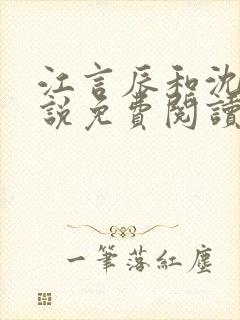 江言辰和沈
說免費閱讀
一筆落紅塵